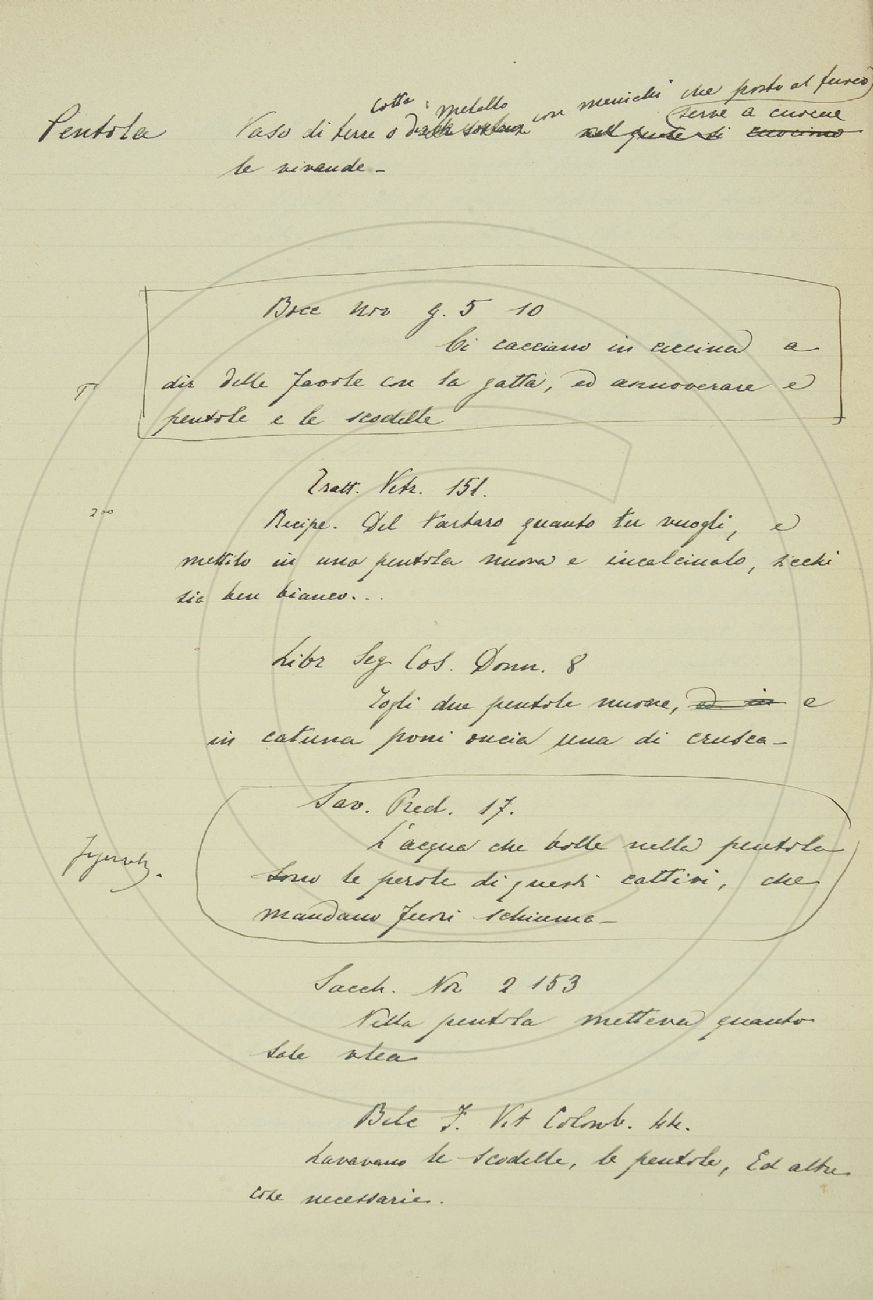 cotta metallo con manichi che posto al fuoco
Pentola Vaso di terra o d'altra sostanza nel quale si cuocono serve a cuocere
le vivande -
Bocc nov g. 5 10
Ci cacciano in cucina a
dir delle favole con la gatta, ed annoverare e
pentole e le scodelle
Tratt. Vetr. 151.
200 Recipe. Del Tartaro quanto tu vuogli, e
mettilo in una pentola nuova e incalcinalo, sicchè
sia ben bianco...
Libr Seg Cos. Donn. 8
Togli due pentole nuove, ed in e
in catuna poni oncia una di crusca -
Sav. Pred. 17.
L'acqua che bolle nella pentola
sono le parole di questi cattivi, che
mandano fuori schiuma -
Sacch. Nov 2 153
Nella pentola metteva quanto
sale avea
Belc F. Vit Colomb. 44.
Lavavano le scodelle, le pentole, Ed altre
cose necessarie.